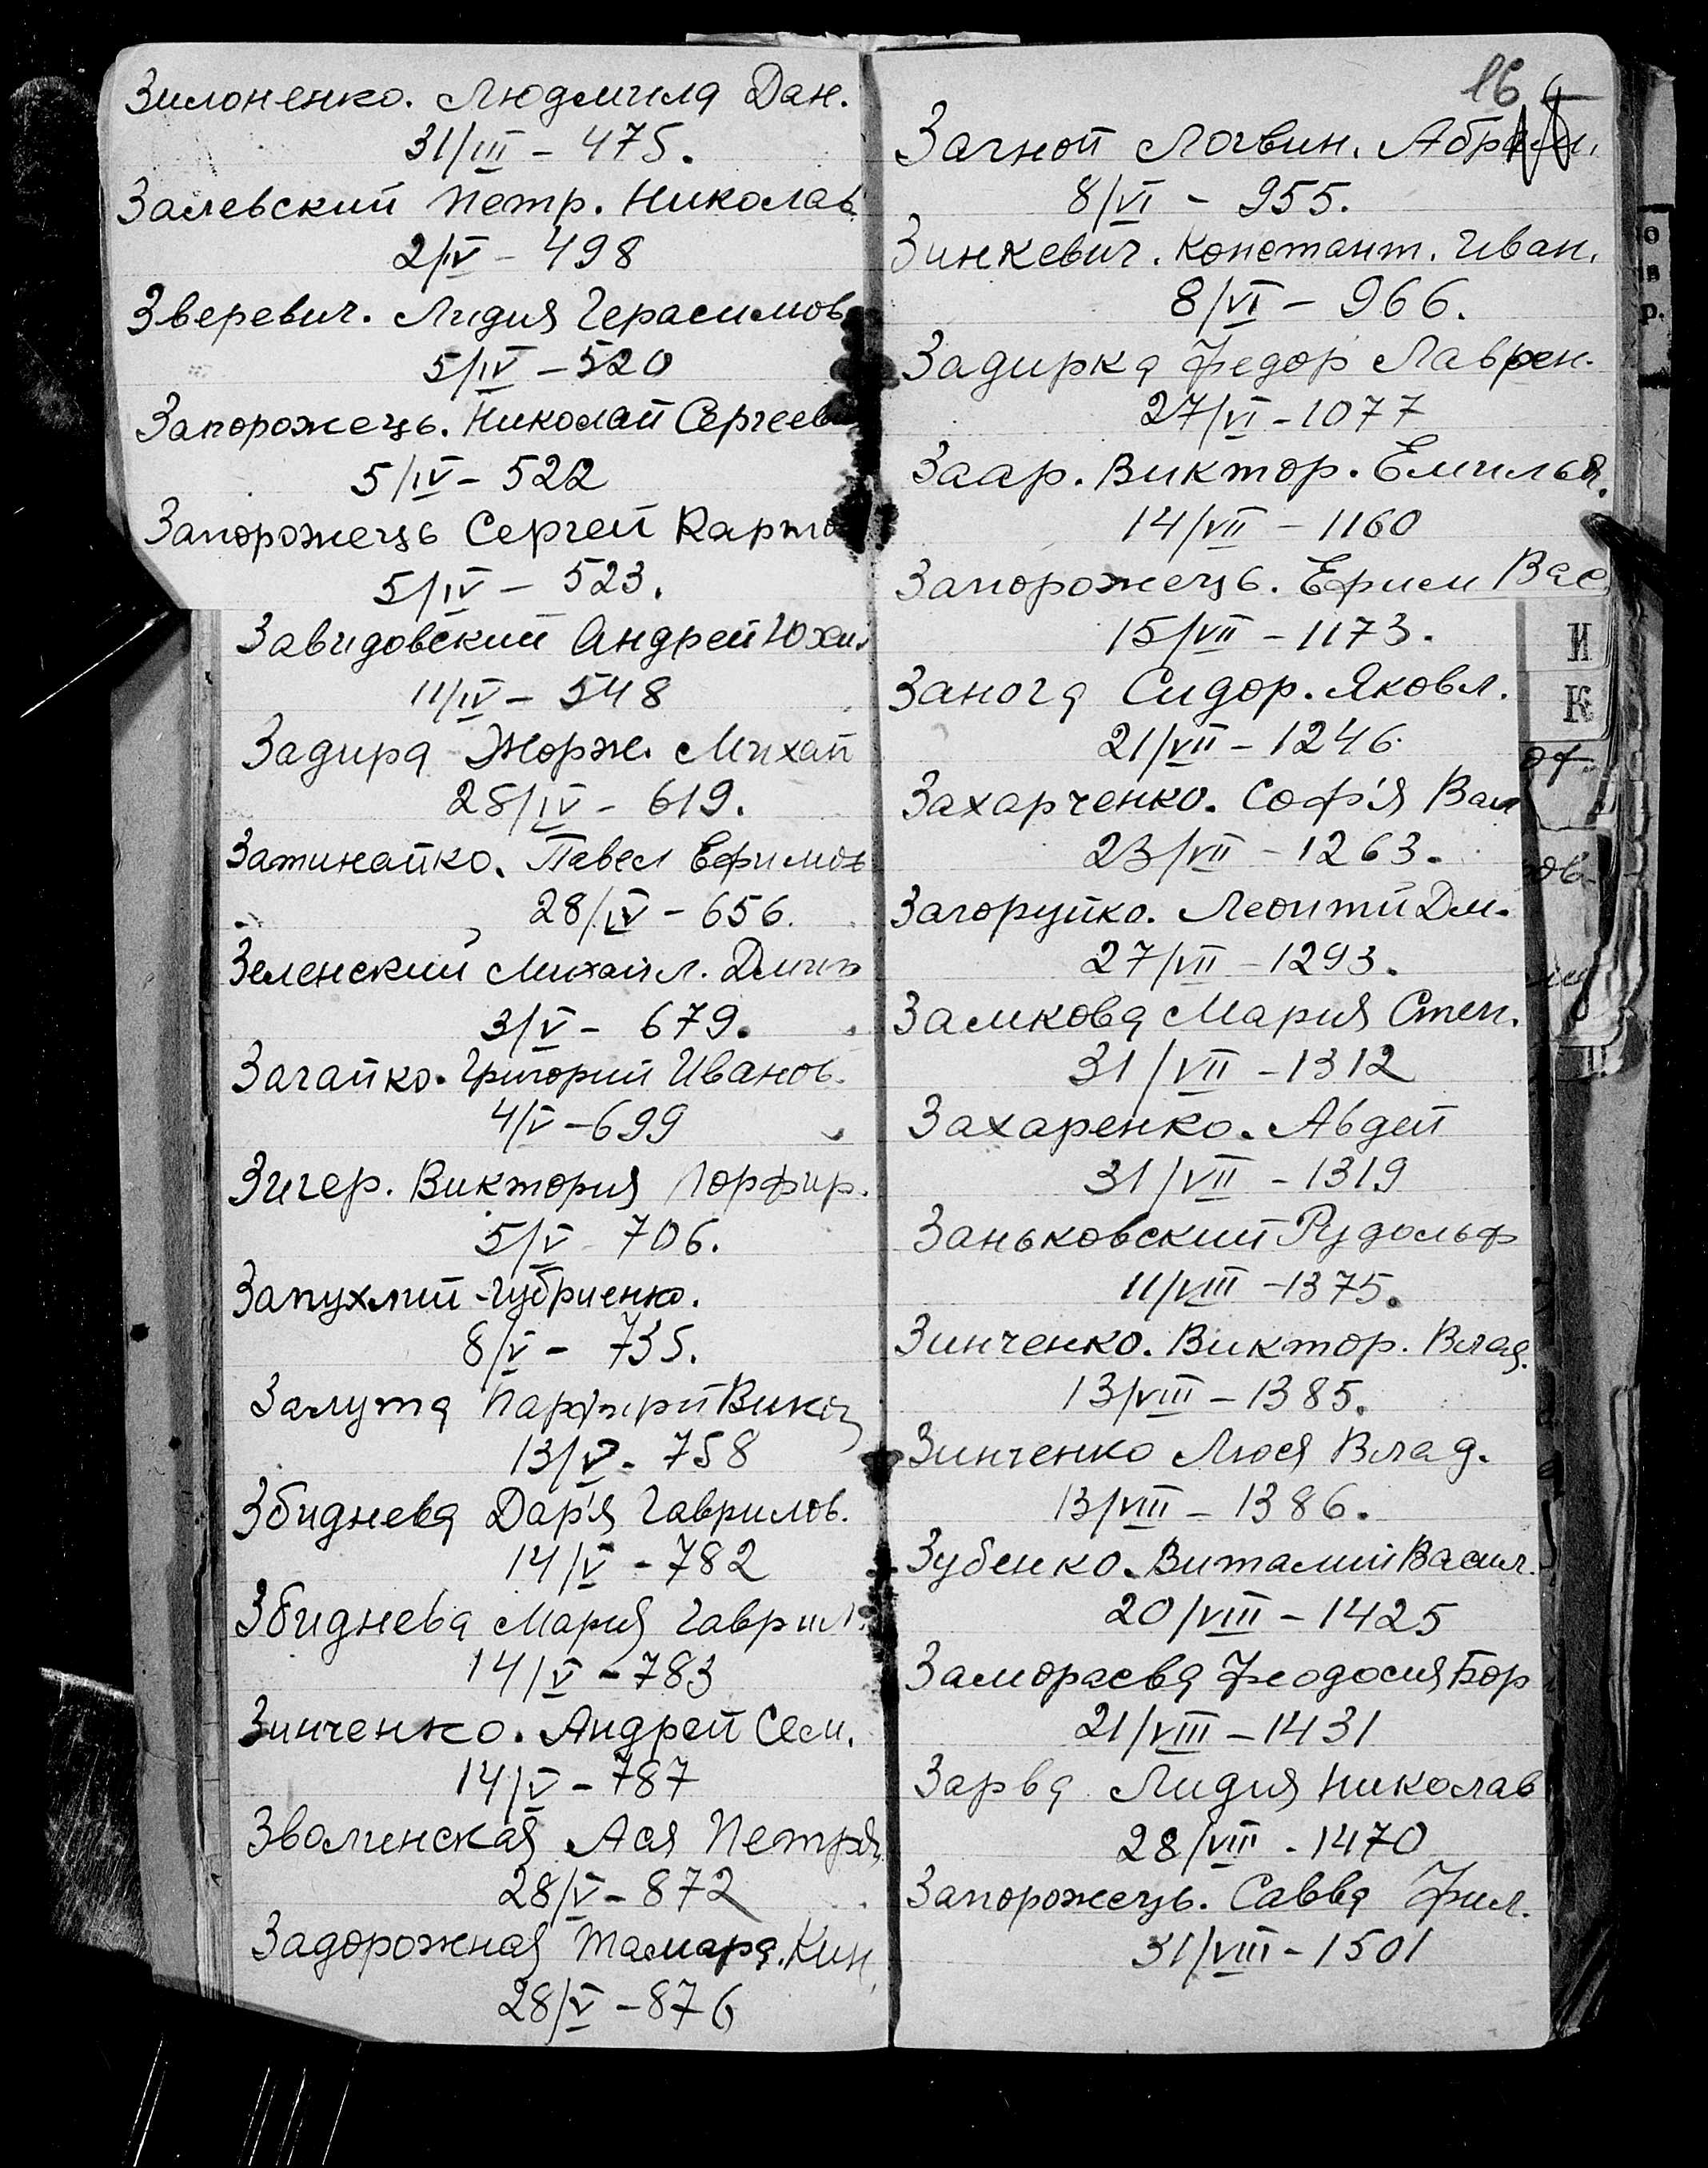 Зилоненко. Людмила Дан.
31/III – 475.
Залевский Петр. Николав.
2/IV – 498
Зверевич. Лидия Герасимов
5/IV – 520
Запорожець. Николай Сергеев
5/IV – 522
Запорожець Сергей
5/IV – 523.
Завидовский Андрей Юхи.
11/IV – 548
Задира Жорж. Михай
28/IV – 619.
Затинайко. Павел Ефимов
28/IV – 656.
Зеленский Михаил. Дмит
3/V – 679.
Загайко. Григорий Иванов.
4/V – 699
Зигер. Виктория Порфир.
5/V – 706.
Запухлий - Губриенко.
8/V – 735.
Залута
13/V – 758
Збиднева Дар'я Гаврилов.
14/V – 782
Збиднева Мария Гаврил.
14/V – 783
Зинченко. Андрей Сем.
14/V – 787
Зволинская Ася Петров.
28/V – 872
Задорожная Тамара. Кин.
28/V – 876
16
Загной Логвин. Абрам.
8/VI – 955.
Зинкевич. Констант. Иван.
8/VI – 966.
Задирка Федор Лаврен.
27/VI – 1077
Заар. Виктор. Емилья.
14/VII – 1160
Запорожець. Ефим Вас
15/VII – 1173.
Занога Сидор. Яковл.
21/VII – 1246.
Захарченко. Соф'я
23/VII – 1263.
Загоруйко. Леонтий Дм.
27/VII – 1293.
Замкова Мария Степ.
31/VII – 1312
Захаренко. Авдей
31/VII – 1319
Заньковский Рудольф
11/VIII – 1375.
Зинченко. Виктор. Влад.
13/VIII – 1385.
Зинченко Люся Влад.
13/VIII – 1386.
Зубенко. Виталий Васил.
20/VIII – 1425
Замораева Феодосия Бор
21/VIII – 1431
Зарва Лидия Николав
28/VIII – 1470
Запорожець. Савва Фил.
31/VIII – 1501
И
К